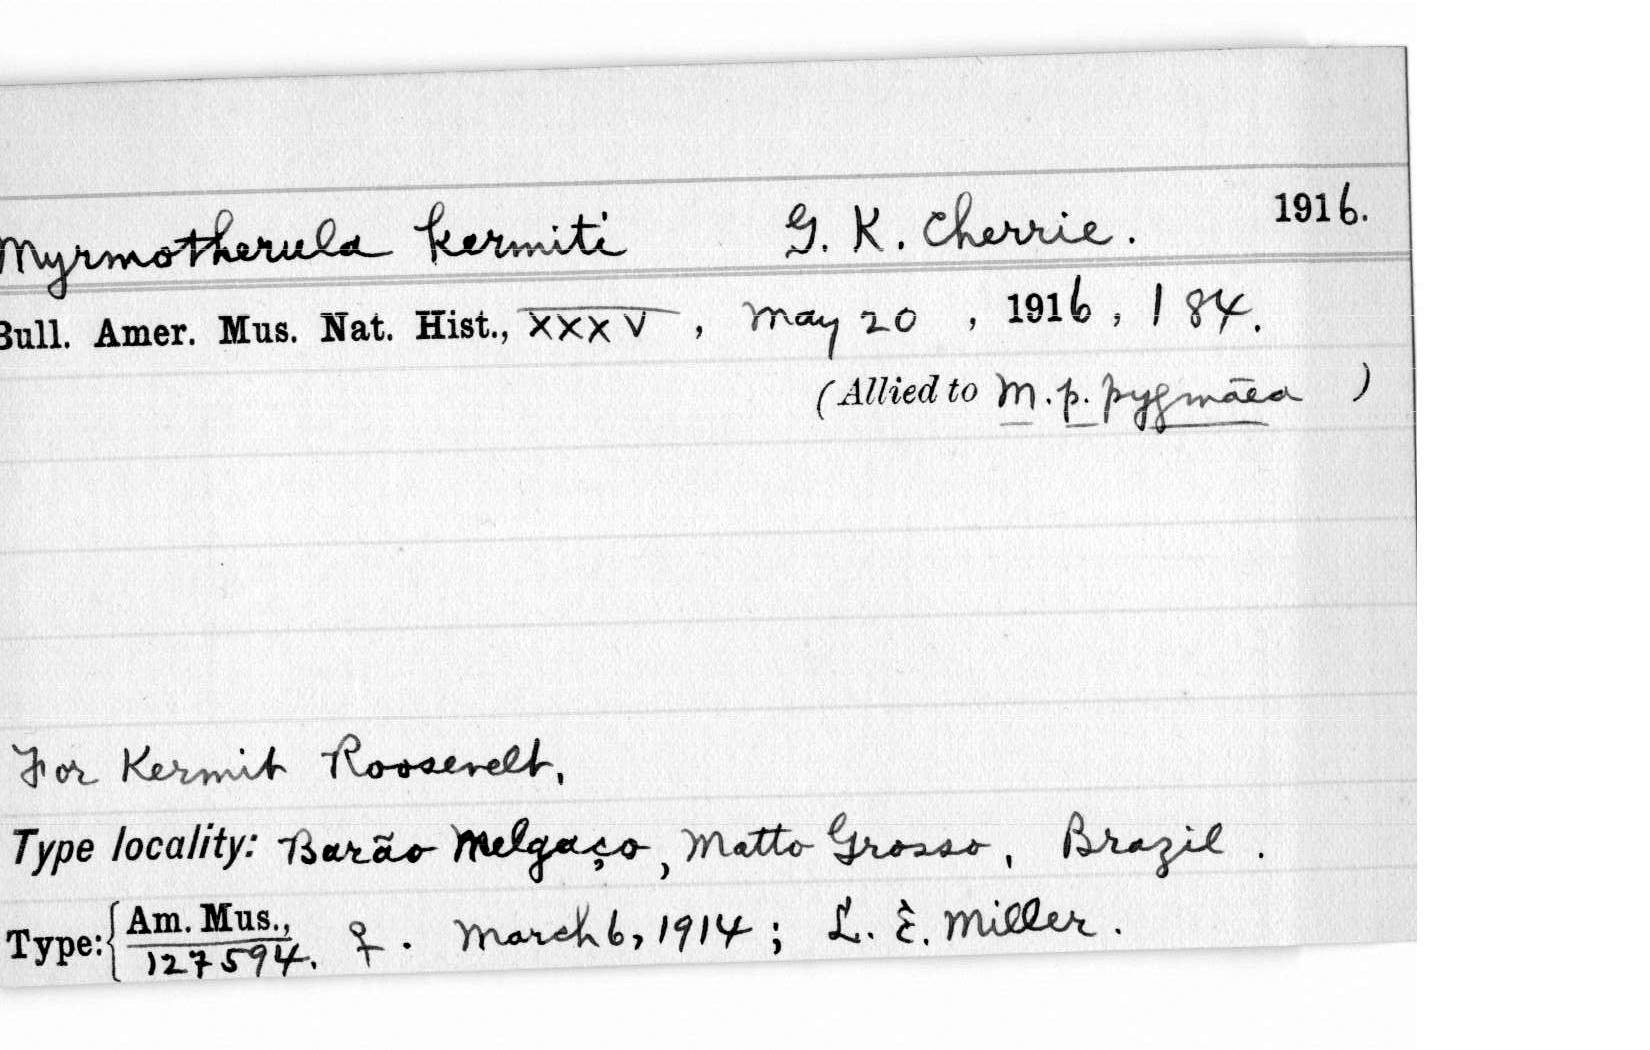 Myrmotherula kermiti G. K. Cherrie. 1916.
Bull. Amer. Mus. Nat. Hist., XXXV, May 20, 1916, 184.
(Allied to M. p. pygmæa)
For Kermit Roosevelt,
Type locality: Barão Melgaço, Matto Grosso, Brazil.
Type: { Am. Mus.,
127594. ♀. March 6, 1914; L. E. Miller.